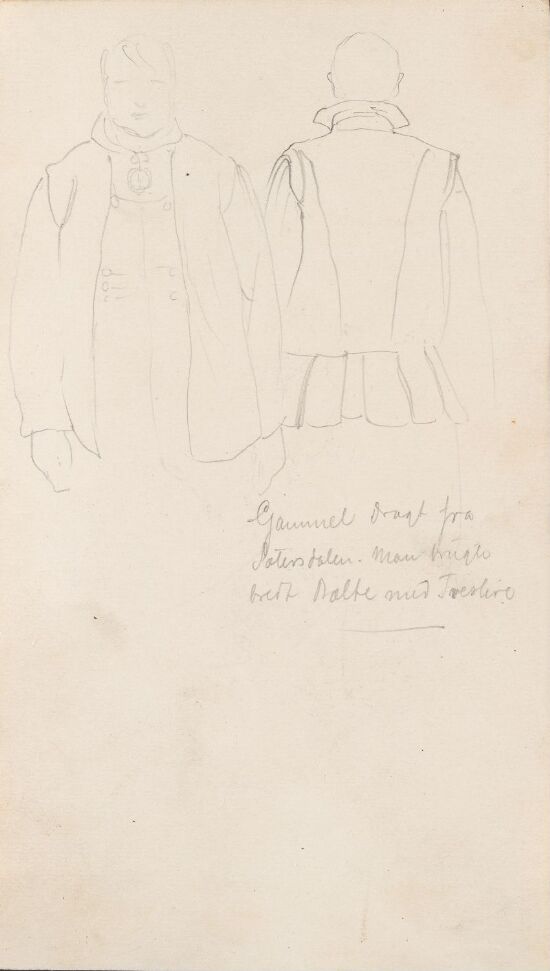 Gammel Dragt fra
Sætersdalen. Man brugte
bredt Bælte med Treslire